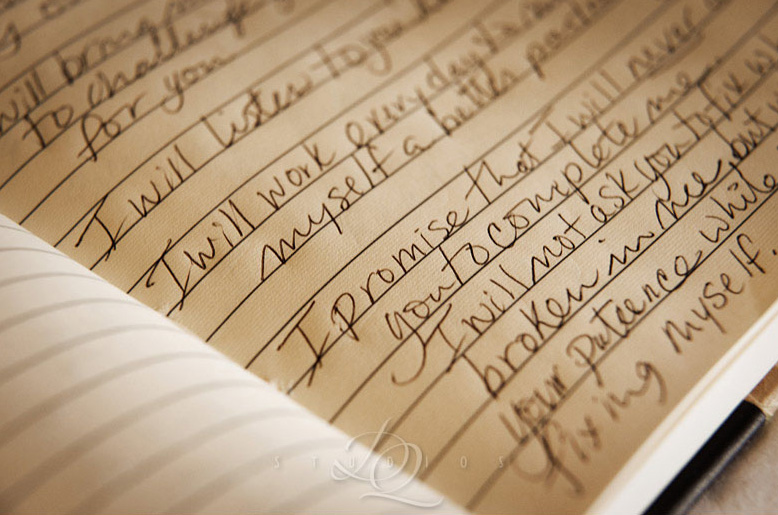 will bring
to challenge
for you
I will listen to you
I will work everyday to
myself a better
I promise that I will never
you to complete me.
I will not ask you to fix
broken in me, but
your pateence while
fixing myself.
STUDIOS